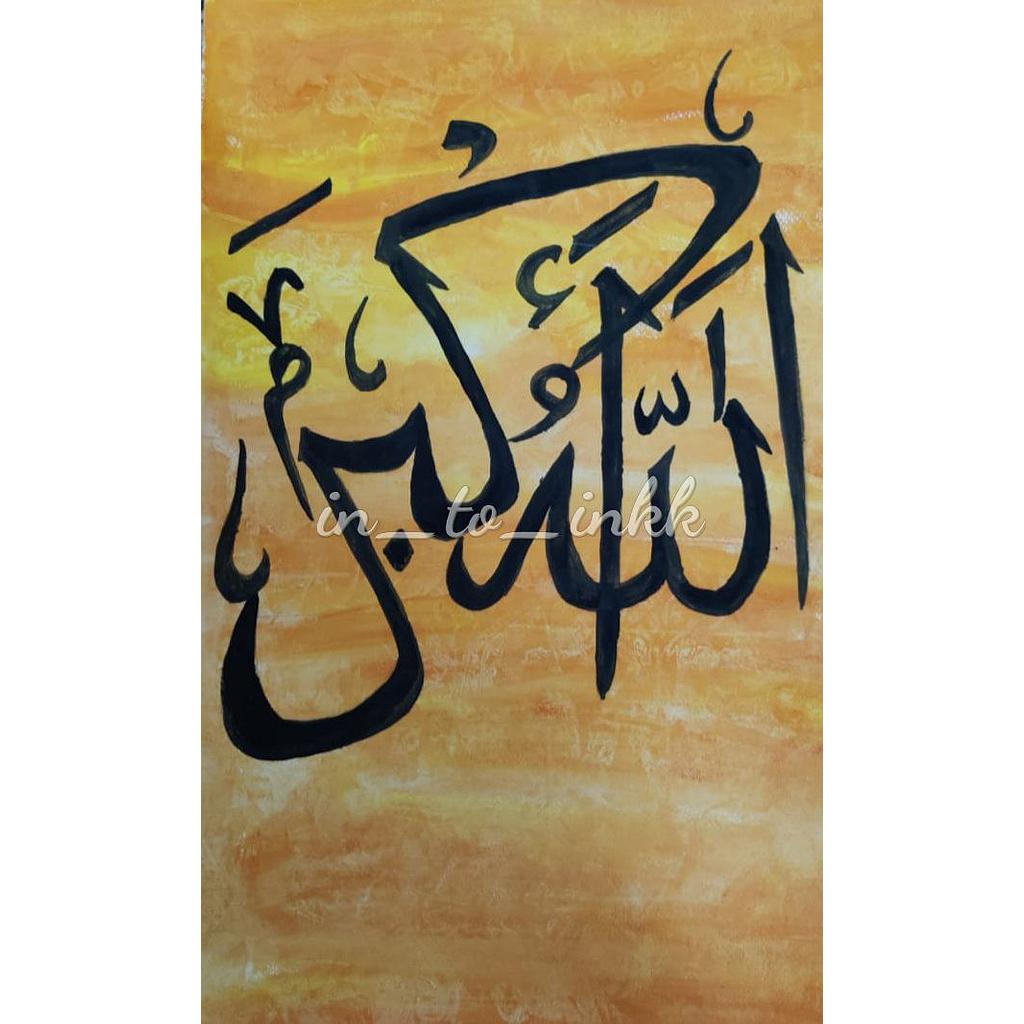 اللهُ أَكْبَرُ
in_to_inkk